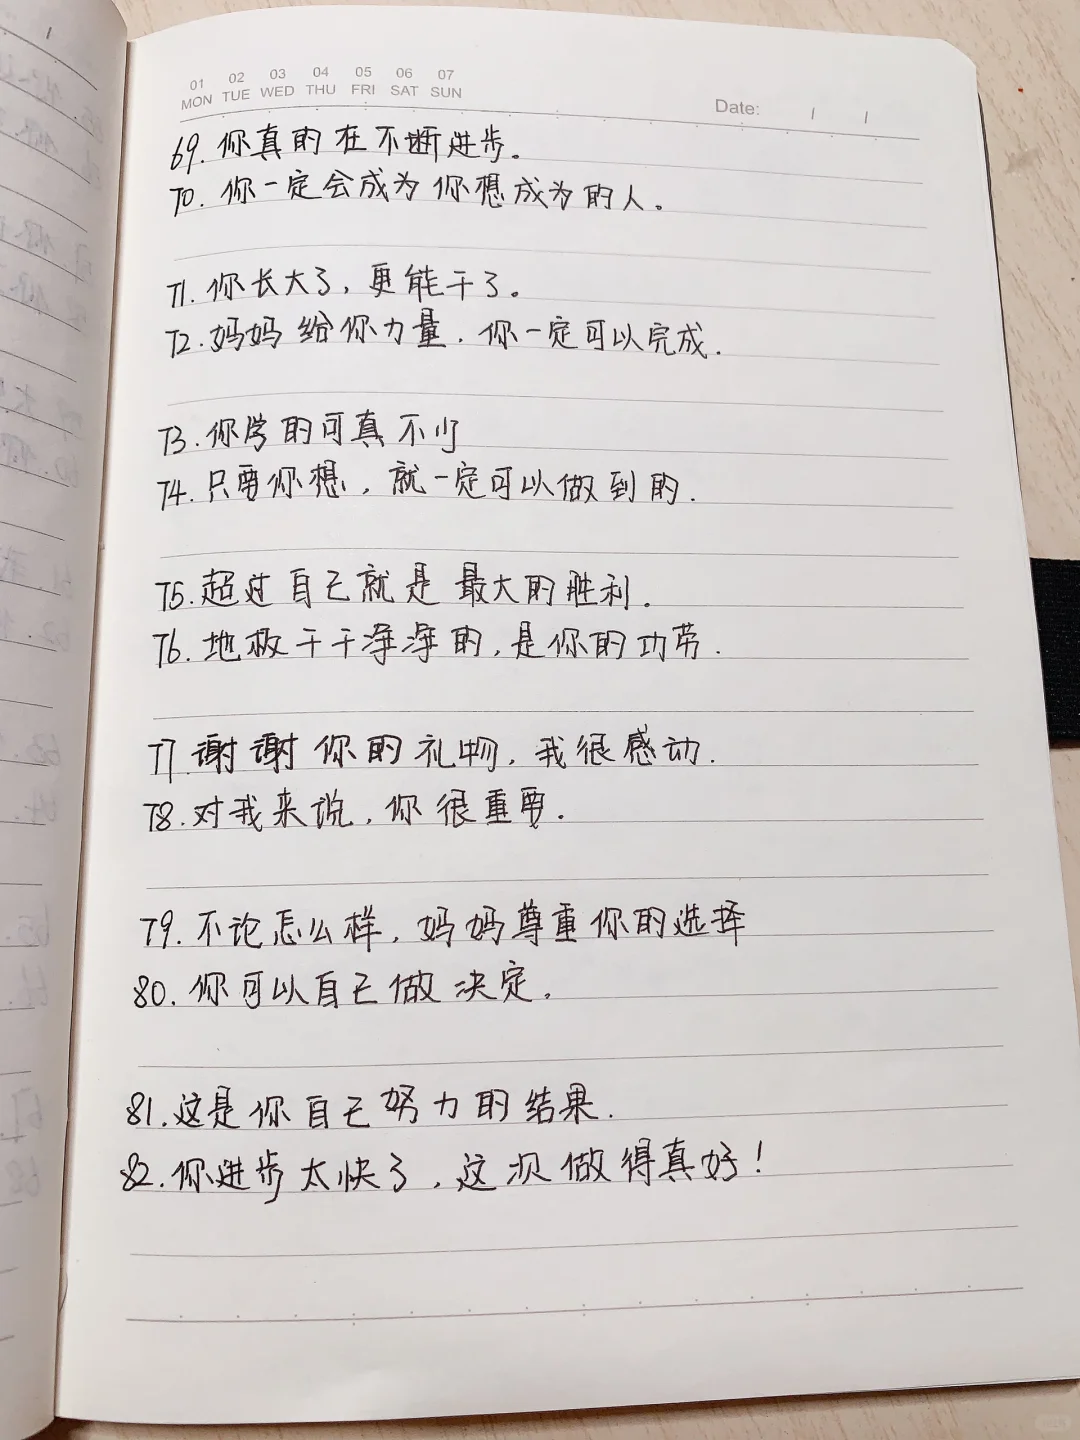 01 02 03 04 05 06 07
MON TUE WED THU FRI SAT SUN
Date: / /
69. 你真的在不断进步。
70. 你一定会成为你想成为的人。
71. 你长大了, 更能干了。
72. 妈妈给你力量. 你一定可以完成.
73. 你学的可真不少
74. 只要你想, 就一定可以做到的.
75. 超过自己就是最大的胜利.
76. 地板干干净净的, 是你的功劳.
77. 谢谢你的礼物, 我很感动.
78. 对我来说, 你很重要.
79. 不论怎么样, 妈妈尊重你的选择
80. 你可以自己做决定.
81. 这是你自己努力的结果.
82. 你进步太快了, 这次做得真好!